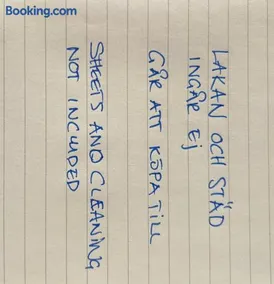 Booking.com
LAKAN OCH STÄD
INGÅR EJ
GÅR ATT KÖPA TILL
SHEETS AND CLEANING
NOT INCLUDED